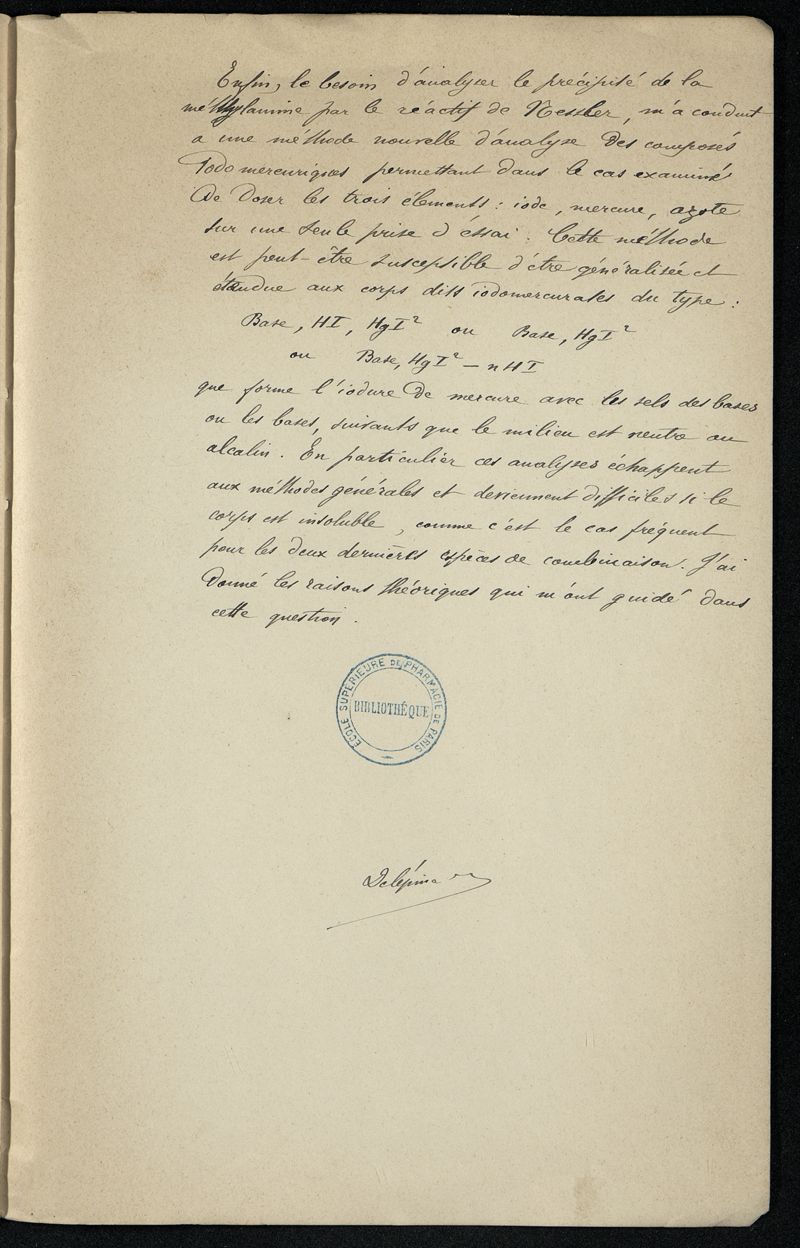 Enfin, le besoin d'analyser le précipité de la
méthylamine par le réactif de Nessler, m'a conduit
a une méthode nouvelle d'analyse des composés
Iodomercuriques permettant dans le cas examiné
de doser les trois éléments : iode, mercure, azote
sur une seule prise d'éssai. Cette méthode
est peut-être susceptible d'être généralisée et
étendue aux corps dits iodomercurates du type :
Base, HI, HgI² ou Base, HgI²
ou Base, HgI² - nHI
que forme l'iodure de mercure avec les sels des bases
ou les bases, suivants que le milieu est neutre ou
alcalin. En particulier ces analyses échappent
aux méthodes générales et deviennent difficiles si le
corps est insoluble, comme c'est le cas fréquent
pour les deux dernières espèces de combinaison. J'ai
donné les raisons théoriques qui m'ont guidé dans
cette question.
ÉCOLE SUPÉRIEURE DE PHARMACIE DE PARIS
BIBLIOTHÉQUE
Delépine